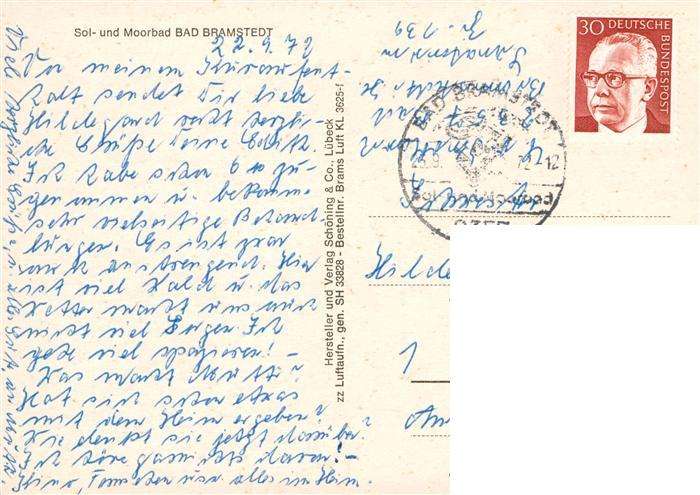 Sol- und Moorbad BAD BRAMSTEDT
22.9.72
Von meinem Kuraufent-
halt sendet Dir liebe
Hildegard recht herzli-
che Grüße Deine Edith.
Ich habe schon 6 zu-
genommen u. bekomme
sehr vielseitige Behand-
lungen. Es ist zwar
auch anstrengend. Hier
ist viel Wald u. das
Wetter macht uns auch
nicht viel Sorgen. Ich
gehe viel spazieren! –
Was macht Mutti?
Hat sich schon etwas
mit dem Heim ergeben?
Wie denkt sie jetzt darüber?
Ich höre garnichts davon! –
usw. alles im Heim.
Viel herzliche Grüße an alle
Hersteller und Verlag Schöning & Co., Lübeck
zz Luftaufn., gen. SH 33828 - Bestellnr. Brams Luft KL 3625-f
Zi. 139
Sanatorium
30 DEUTSCHE
BUNDESPOST
BAD BRAMSTEDT
Sol- und Moorbad
2357
Hilde
1